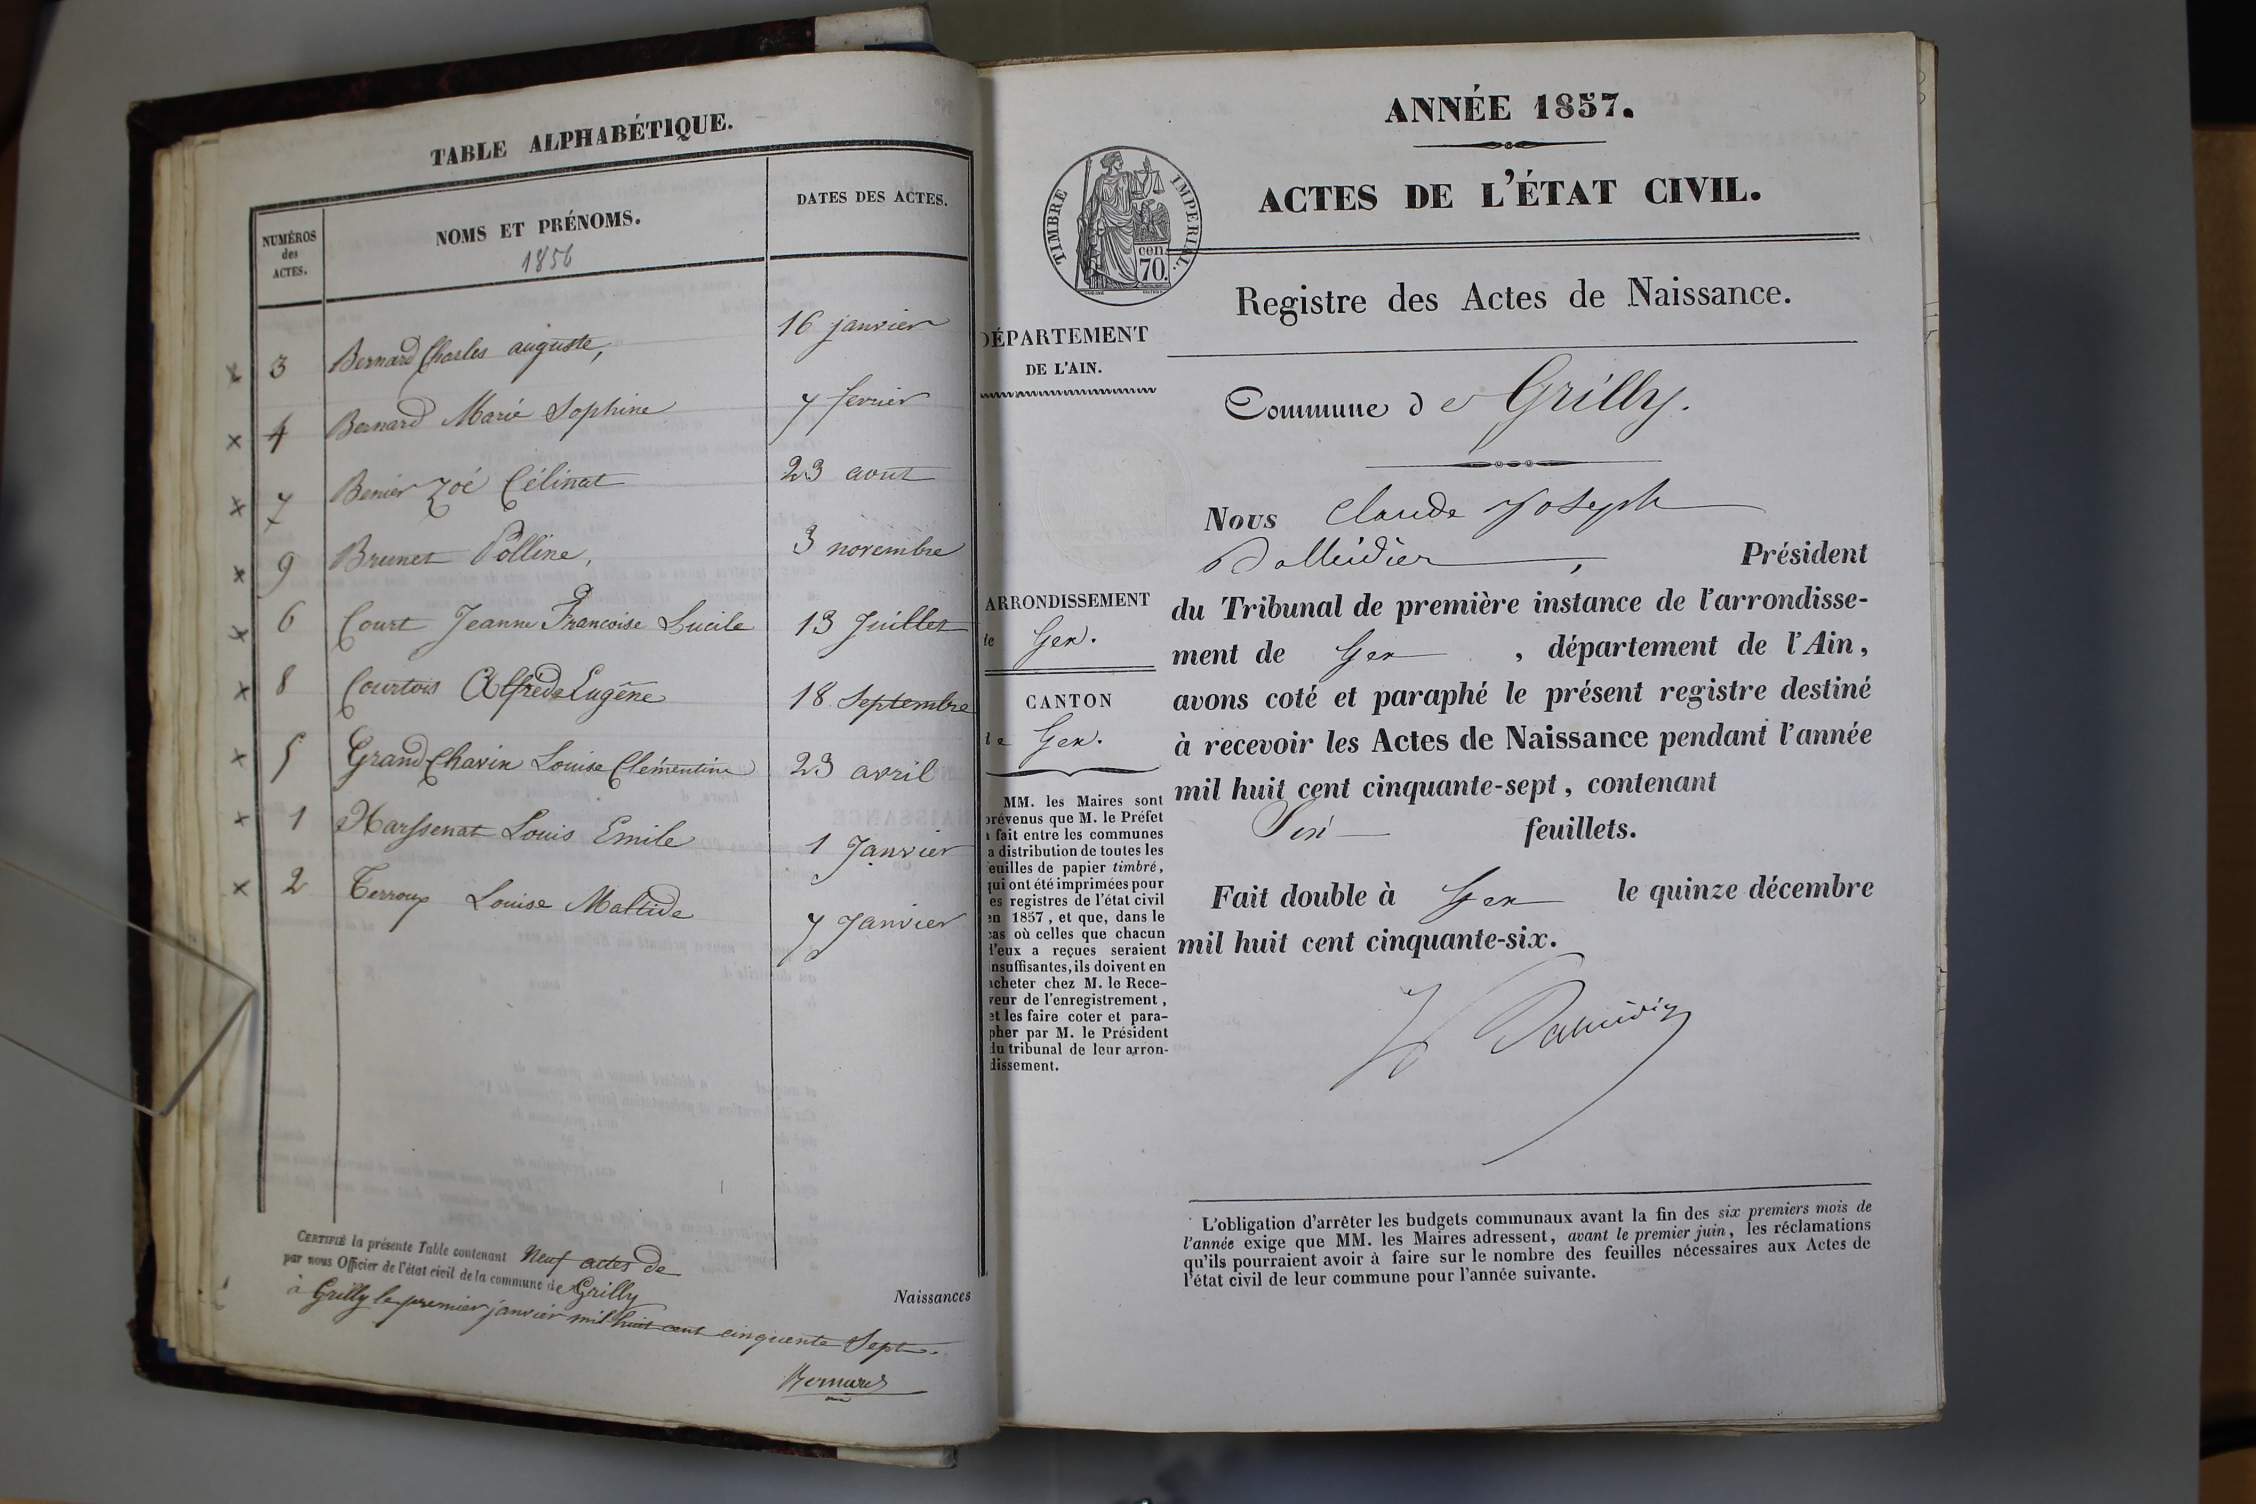 TABLE ALPHABÉTIQUE.
NUMÉROS
des
ACTES.
NOMS ET PRÉNOMS.
1856
DATES DES ACTES.
x 3 Bernard Charles auguste, 16 janvier
x 4 Bernard Marie Sophine 7 fevrier
x 7 Benier Zoé Célinat 23 aout
x 9 Brunet Polline, 3 novembre
x 6 Court Jeanne Francoise Lucile 13 Juillet
x 8 Courtois Alfrede Eugêne 18 Septembre
x 5 Grand Chavin Louise Clementine 23 avril
x 1 Harssenat Louis Emile 1 Janvier
x 2 Terroux Louise Maltide 7 Janvier
CERTIFIÉ la présente Table contenant Neuf actes de
par nous Officier de l'état civil de la commune de Grilly
à Grilly le premier janvier mil huit cent cinquente Sept.
Naissances
Bernard
ANNÉE 1857.
ACTES DE L'ÉTAT CIVIL.
TIMBRE IMPERIAL.
cen
70.
Registre des Actes de Naissance.
DÉPARTEMENT
DE L'AIN.
Commune de Grilly.
Nous Claude Joseph
Président
du Tribunal de première instance de l'arrondisse-
ment de Gex, département de l'Ain,
avons coté et paraphé le présent registre destiné
à recevoir les Actes de Naissance pendant l'année
mil huit cent cinquante-sept, contenant
Six feuillets.
Fait double à Gex le quinze décembre
mil huit cent cinquante-six.
ARRONDISSEMENT
de Gex.
CANTON
de Gex.
MM. les Maires sont
prévenus que M. le Préfet
a fait entre les communes
la distribution de toutes les
feuilles de papier timbré,
qui ont été imprimées pour
les registres de l'état civil
en 1857, et que, dans le
cas où celles que chacun
d'eux a reçues seraient
insuffisantes, ils doivent en
acheter chez M. le Rece-
veur de l'enregistrement,
et les faire coter et para-
pher par M. le Président
du tribunal de leur arron-
dissement.
L'obligation d'arrêter les budgets communaux avant la fin des six premiers mois de
l'année exige que MM. les Maires adressent, avant le premier juin, les réclamations
qu'ils pourraient avoir à faire sur le nombre des feuilles nécessaires aux Actes de
l'état civil de leur commune pour l'année suivante.